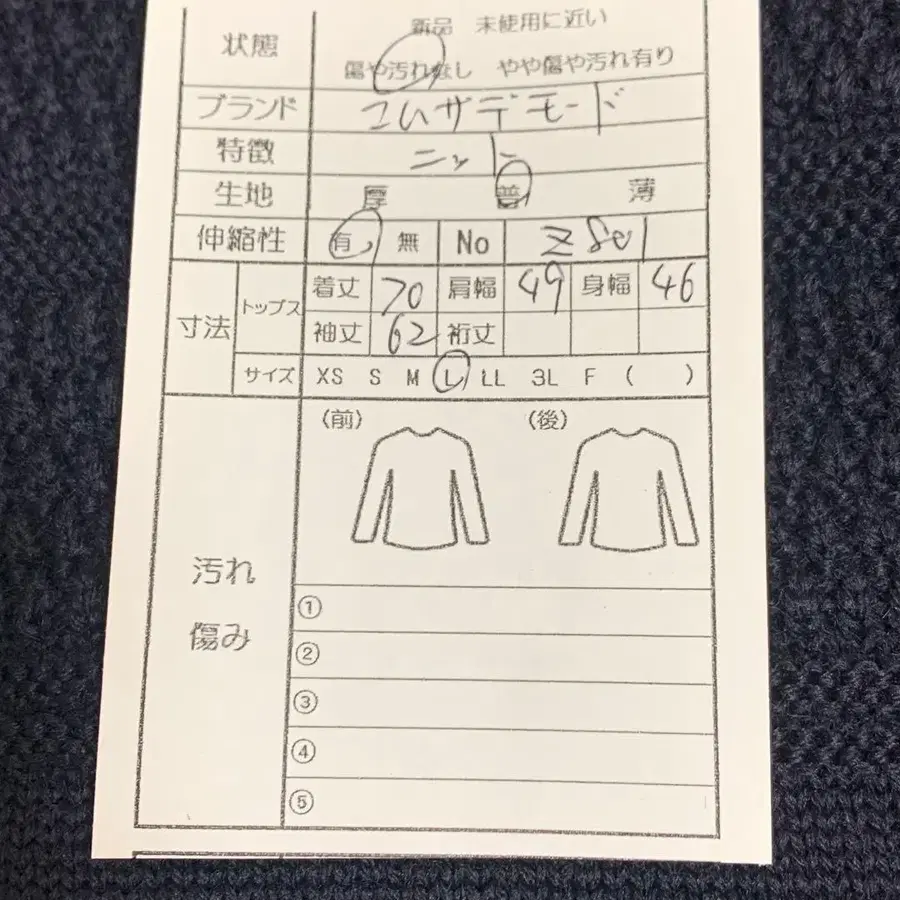 状態 新品 未使用に近い
傷や汚れなし やや傷や汚れ有り
ブランド コムサデモード
特徴 ニット
生地 厚 普 薄
伸縮性 有 無 No
寸法 トップス 着丈 70 肩幅 49 身幅 46
袖丈 62 裄丈
サイズ XS S M L LL 3L F ( )
(前) (後)
汚れ
傷み
①
②
③
④
⑤